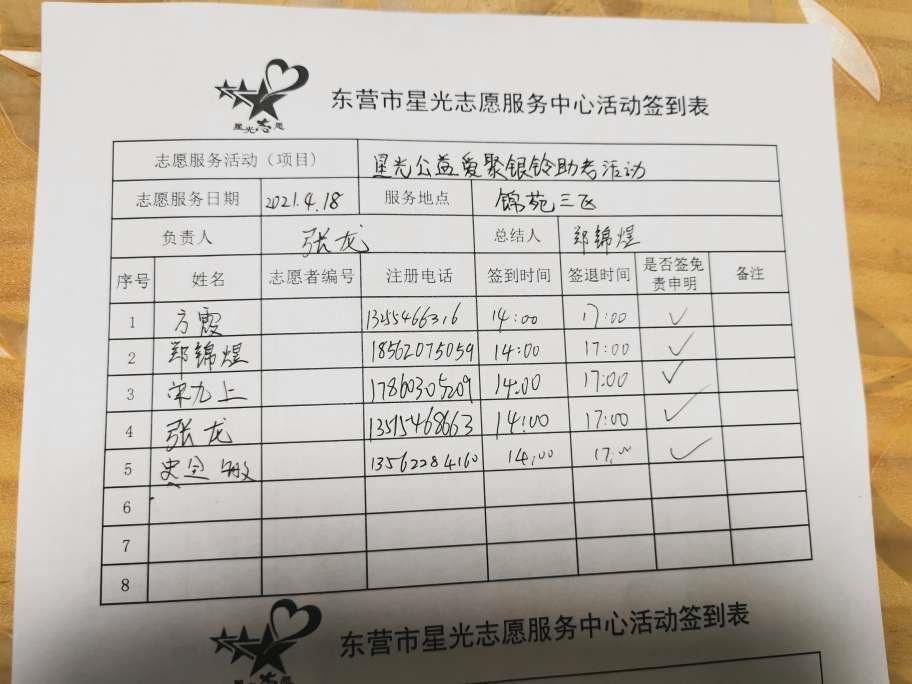 星光志愿
东营市星光志愿服务中心活动签到表
志愿服务活动（项目） 星光公益爱聚银铃助老活动
志愿服务日期 2021.4.18 服务地点 锦苑三区
负责人 张龙 总结人 郑锦煜
序号 姓名 志愿者编号 注册电话 签到时间 签退时间 是否签免责申明 备注
1 方霞 1355466316 14:00 17:00 ✓
2 郑锦煜 18562075059 14:00 17:00 ✓
3 宋九上 17860305209 14:00 17:00 ✓
4 张龙 13515468663 14:00 17:00 ✓
5 史全敏 13562284160 14:00 17:00 ✓
6
7
8
东营市星光志愿服务中心活动签到表